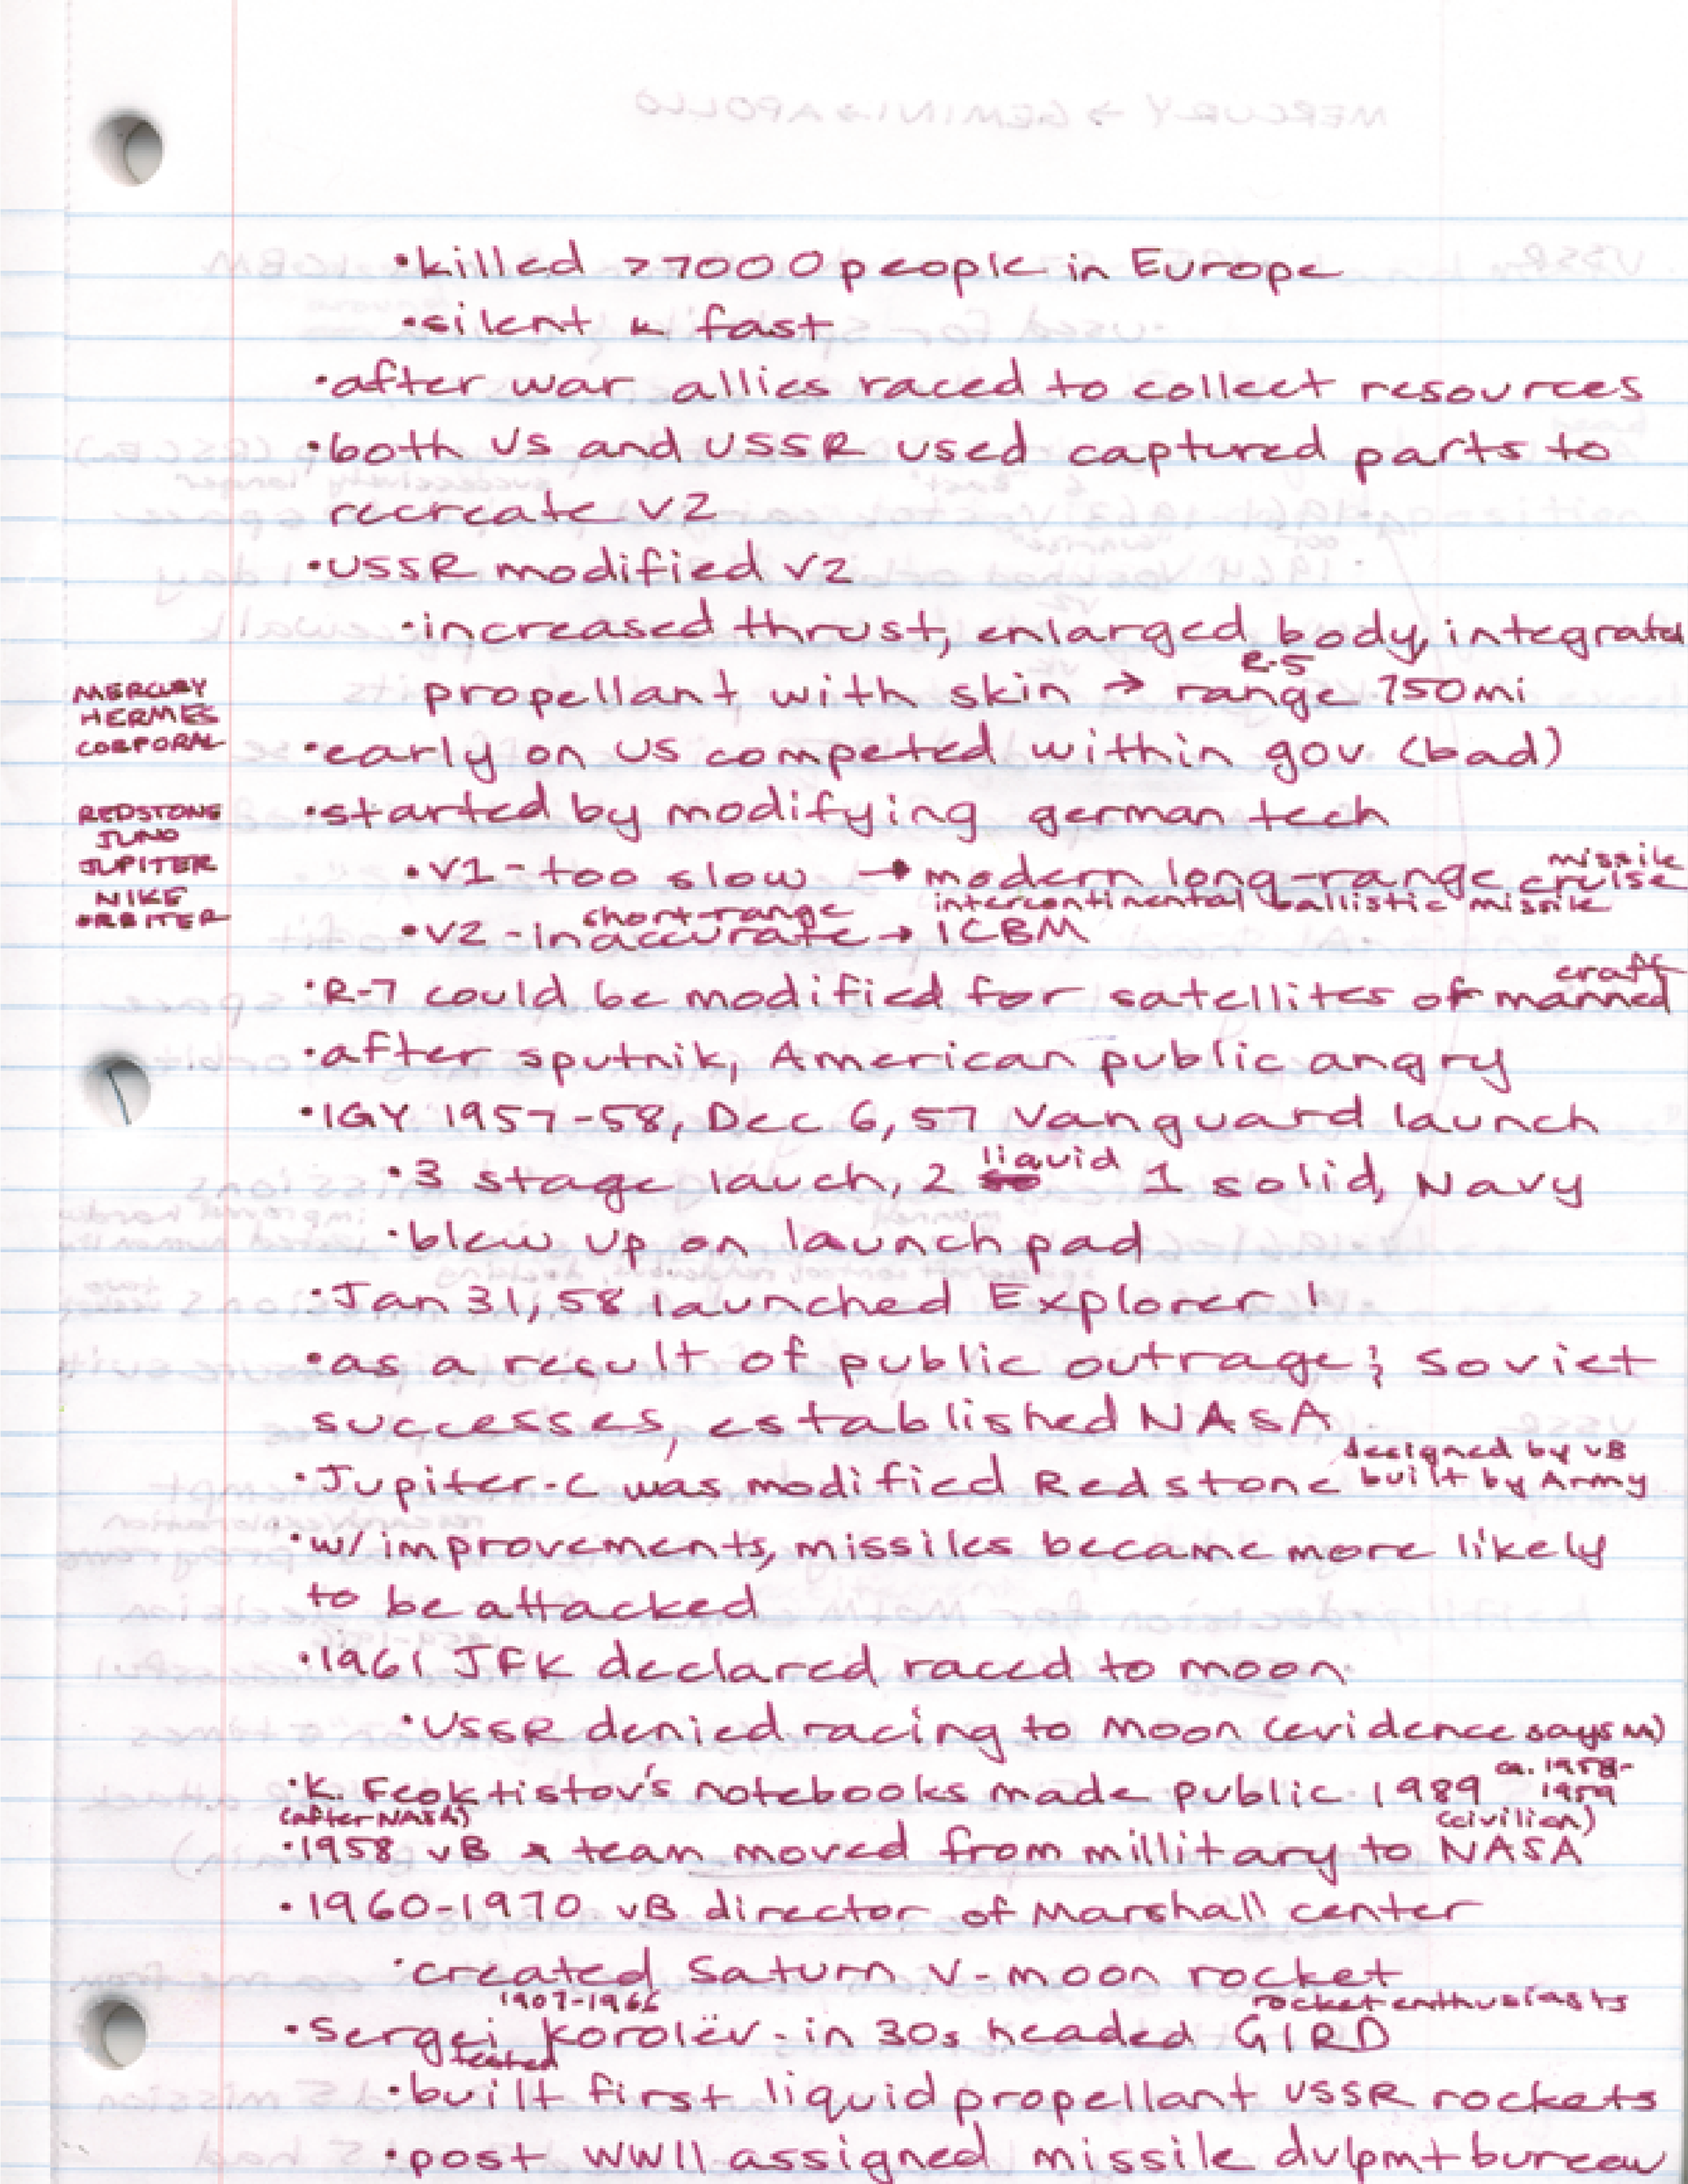 •killed >7000 people in Europe
•silent & fast
•after war allies raced to collect resources
•both US and USSR used captured parts to
recreate V2
•USSR modified V2
•increased thrust, enlarged body, integrated
R-5
propellant with skin → range 750mi
MERCURY
HERMES
CORPORAL
•early on US competed within gov (bad)
•started by modifying german tech
REDSTONE
JUNO
JUPITER
NIKE
ORBITER
missile
•V1 - too slow → modern long-range cruise
short-range intercontinental ballistic missile
•V2 - inaccurate → ICBM
craft
•R-7 could be modified for satellites or manned
•after sputnik, American public angry
•IGY 1957-58, Dec 6, 57 Vanguard launch
liquid
•3 stage lauch, 2 so 1 solid, Navy
•blew up on launch pad
•Jan 31, 58 launched Explorer 1
•as a result of public outrage & soviet
successes, established NASA
designed by vB
•Jupiter-C was modified Redstone built by Army
•w/ improvements, missiles became more likely
to be attacked
•1961 JFK declared raced to moon
•USSR denied racing to moon (evidence says)
ca. 1958-
•K. Feoktistov's notebooks made public 1989 1959
(after NASA) (civilian)
•1958 vB & team moved from millitary to NASA
•1960-1970 vB director of Marshall center
•created Saturn V - moon rocket
1907-1966 rocket enthusiasts
•Sergei Korolëv - in 30s headed GIRD
tested
•built first liquid propellant USSR rockets
•post WWII assigned missile dvlpmt bureau